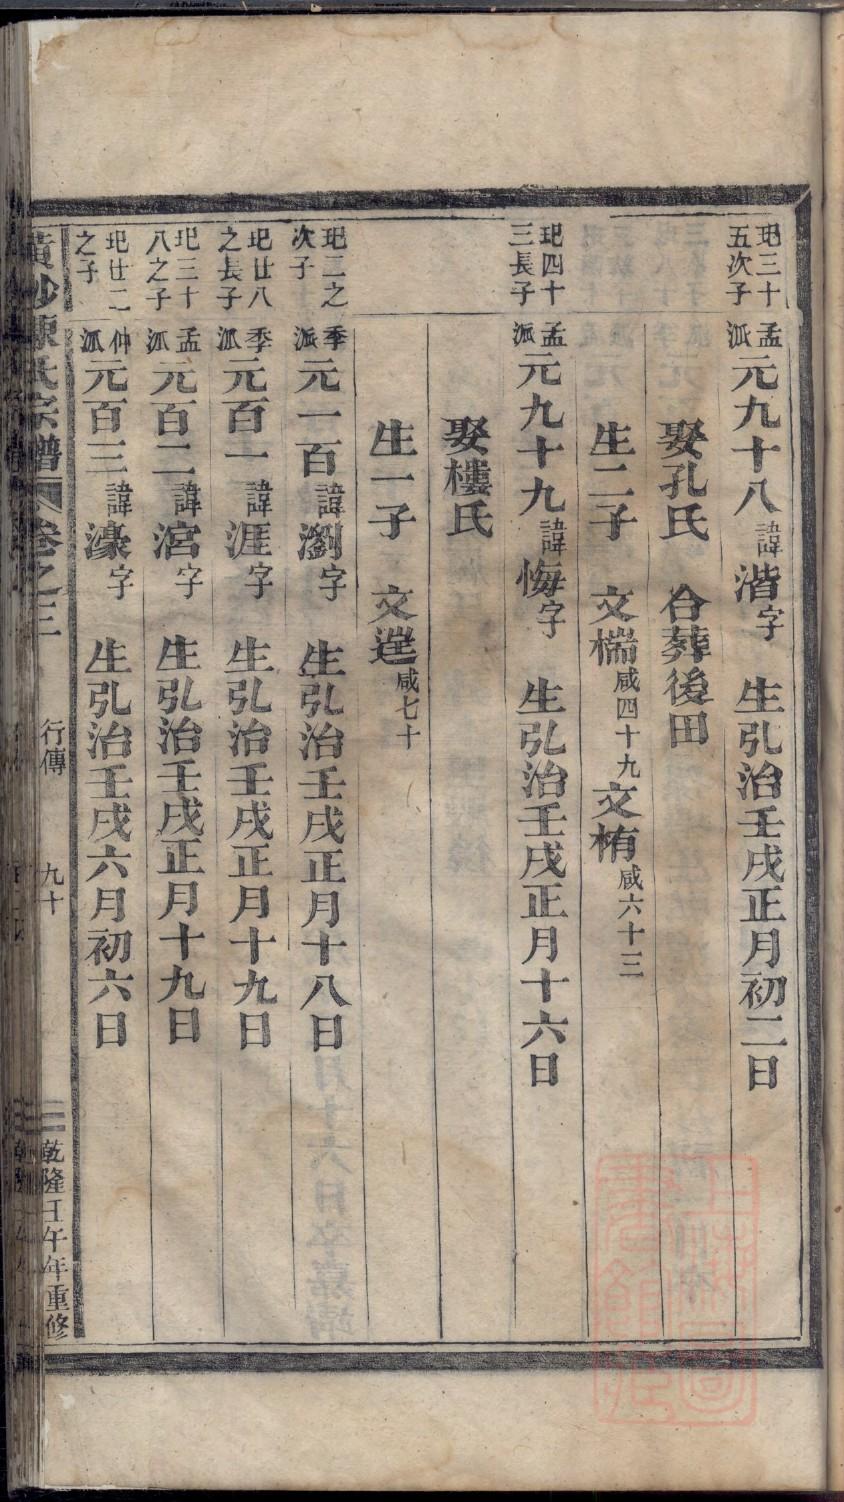 玘三十五次子 孟派 元九十八 諱湝字 生弘治壬戌正月初二日
娶孔氏 合葬後田
生二子 文椯 咸四十九 文栯 咸六十三
玘四十三長子 孟派 元九十九 諱悔字 生弘治壬戌正月十六日
娶樓氏
生一子 文逞 咸七十
玘二之次子 季派 元一百 諱瀏字 生弘治壬戌正月十八日
玘廿八之長子 季派 元百一 諱涯字 生弘治壬戌正月十九日
玘三十八之子 孟派 元百二 諱涫字 生弘治壬戌正月十九日
玘廿二之子 仲派 元百三 諱濠字 生弘治壬戌六月初六日
陳氏宗譜 卷之三 行傳 九十 乾隆壬午年重修